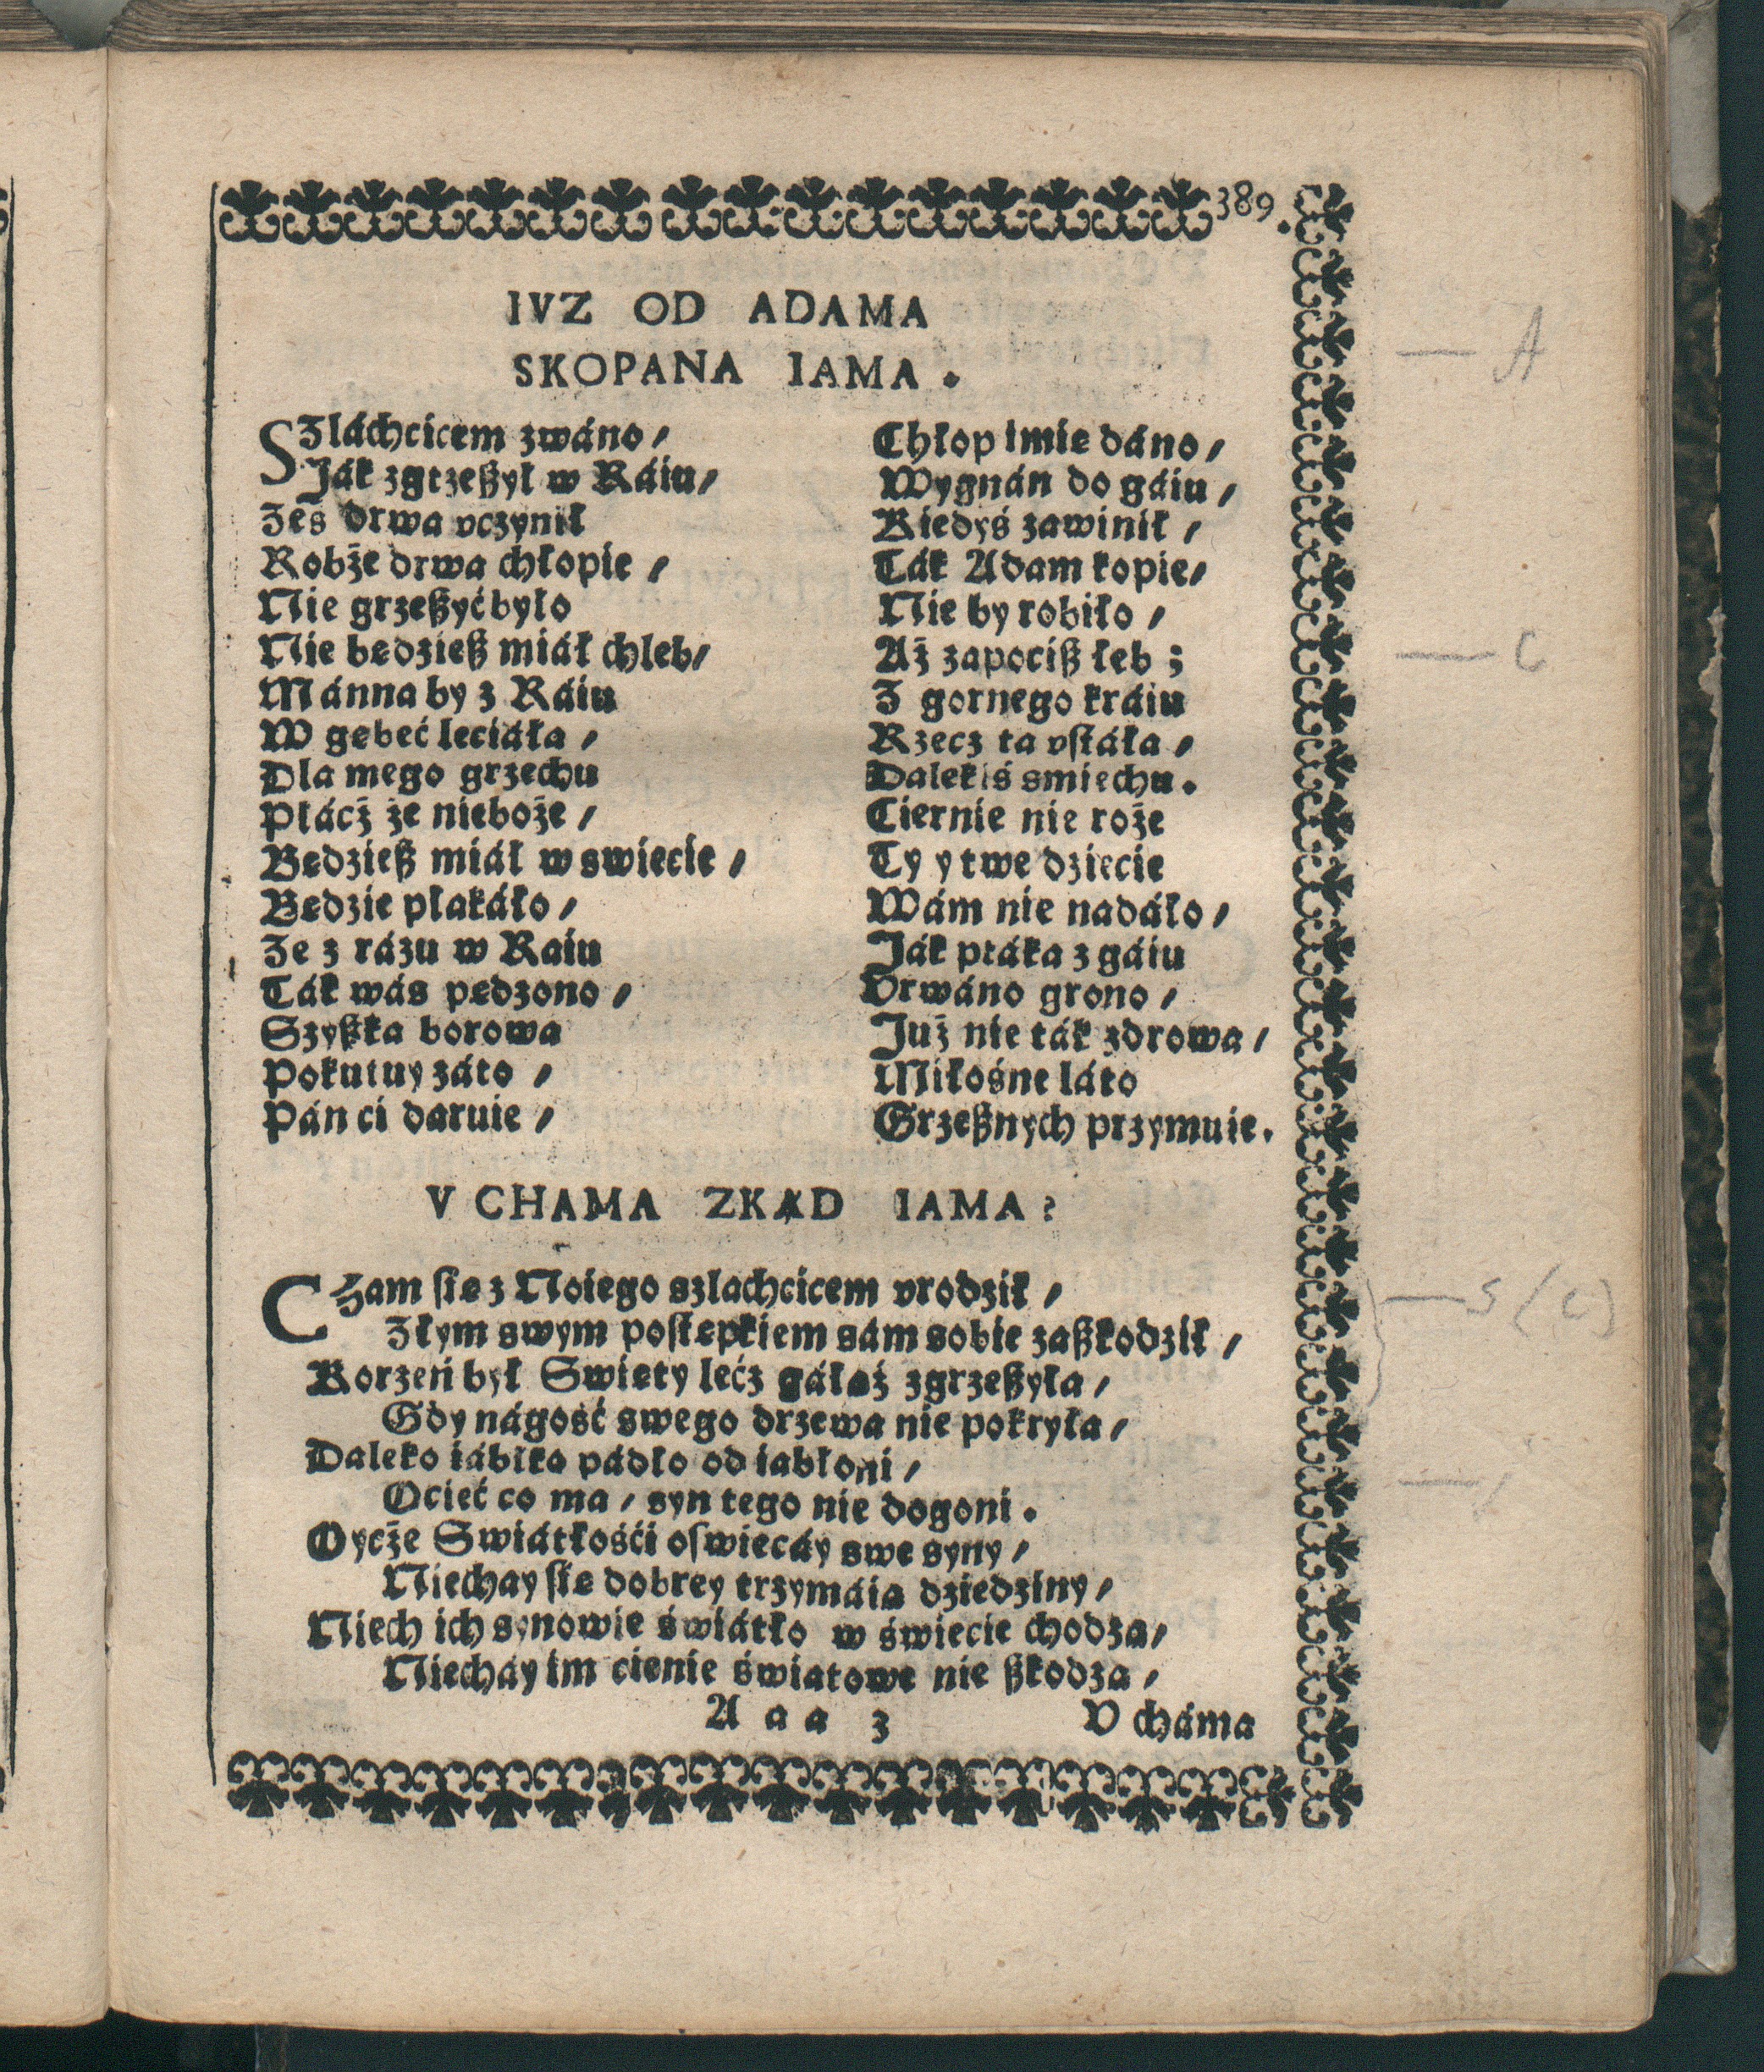 389.
IVZ OD ADAMA
SKOPANA IAMA.
SZláchcicem zwáno, Chłop imie dáno,
Ják zgrzeßył w Ráiu, Wygnán do gáiu,
Ześ drwa vczynił Kiedyś zawinił,
Robże drwa chłopie, Ták Adam kopie,
Nie grzeßyć było Nie by robiło,
Nie będzieß miáł chleb, Aż zapociß łeb;
Mánna by z Ráiu Z gornego kráiu
W gębeć leciáła, Rzecz ta vstáła,
Dla mego grzechu Dalekiś smiechu.
Płácż że nieboże, Ciernie nie roże
Będzieß miáł w swiecie, Ty y twe dziecie
Będzie płakáło, Wám nie nadáło,
Ze z rázu w Raiu Ják ptáka z gáiu
Ták wás pędzono, Vrwáno grono,
Szyßka borowa Już nie ták zdrowa,
Pokutuy záto, Miłośne láto
Pán ci daruie, Grzeßnych przymuie.
V CHAMA ZKĄD IAMA?
CHam ſię z Noiego szlachcicem vrodził,
Złym swym poſtępkiem sám sobie zaßkodził,
Korzeń był Swięty lećz gáłąź zgrzeßyła,
Gdy nágość swego drzewa nie pokryła,
Daleko iábłko pádło od iabłoni,
Ocieć co ma, syn tego nie dogoni.
Oycże Swiátłośći oſwiecáy swe syny,
Niechay ſię dobrey trzymáią dziedziny,
Niech ich synowie świátło w świecie chodzą,
Niecháy im cienie światowe nie ßkodzą,
A a a 3 V cháma
A
C
S (C)